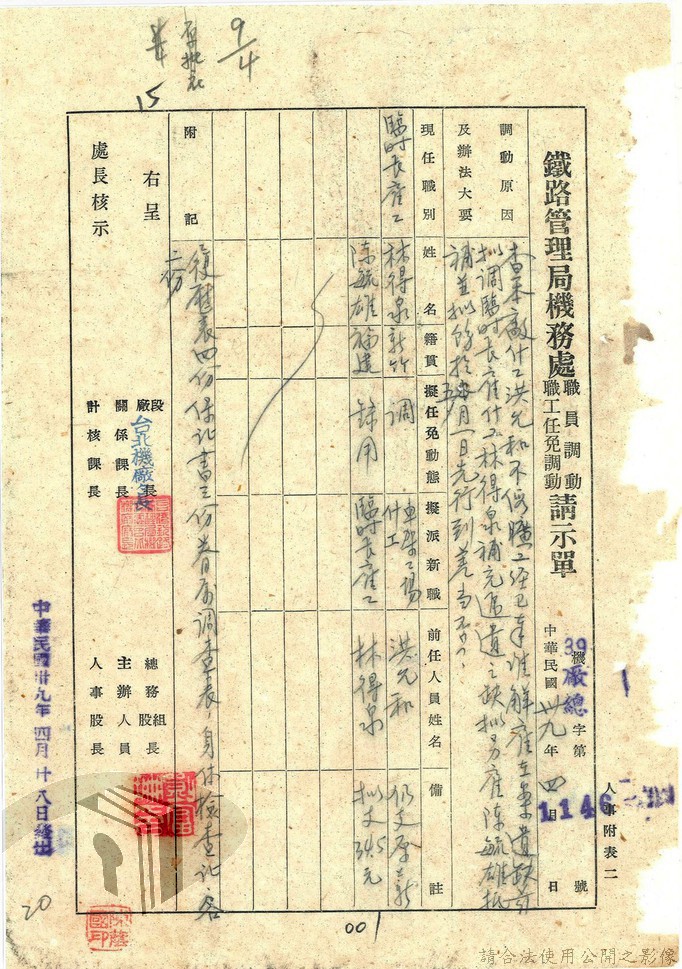 9/4
15
人事附表二
鐵路管理局機務處職員調動職工任免調動請示單
39機廠總字第1146號
中華民國卅九年四月 日
調動原因及辦法大要
查本廠什工洪允和不假曠工經已奉准解雇在案遺缺前
擬調臨時長雇什工林得泉補充遞遺之缺擬另雇陳毓雄抵
補並擬飭於五月一日先行到差當否
現任職別 姓名 籍貫 擬任免動態 擬派新職 前任人員姓名 備註
臨時長雇工 林得泉 新竹 調 什工 洪允和 仍支原薪
陳毓雄 福建 錄用 臨時長雇工 林得泉 擬支345元
附記
履歷表四份保証書三份眷屬調查表、身体檢查証各
二份
右呈
處長核示
段廠長
台北機廠長
關係課長
計核課長
總務組股長
主辦人員
人事股長
中華民國卅九年四月廿八日發出
20
001
請合法使用公開之影像